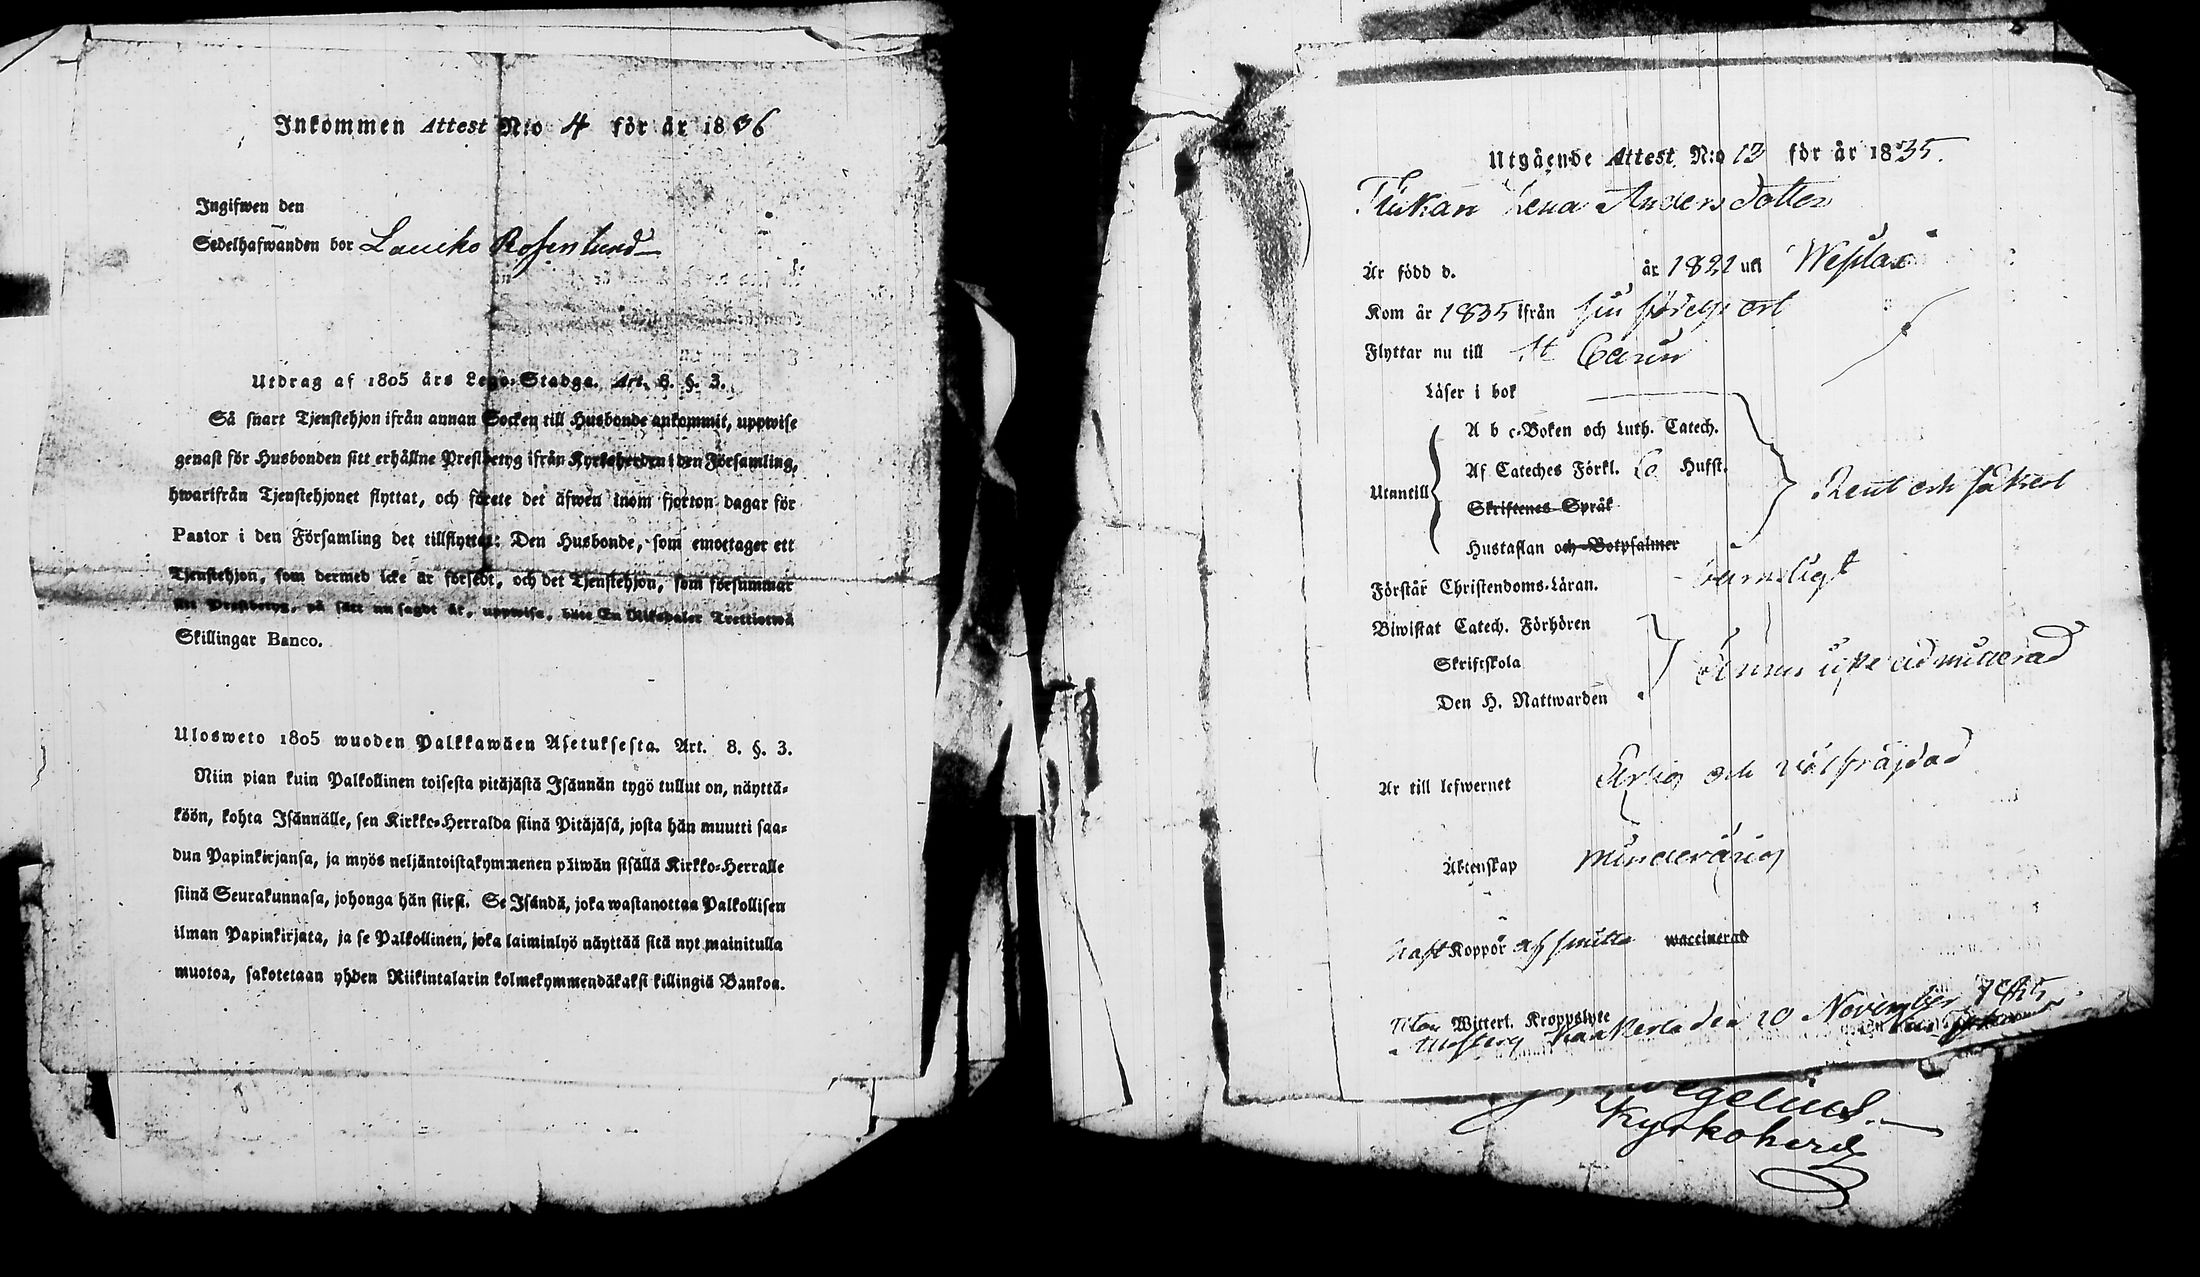 Inkommen Attest N:o 4 för år 1836
Ingifwen den
Sedelhafwanden bor Laucko Rosenlund
Utdrag af 1805 års Lego-Stadga. Art. 8. §. 3.
Så snart Tjenstehjon ifrån annan Socken till Husbonde ankommit, uppwise
genast för Husbonden sitt erhållne Prestbetyg ifrån Kyrkoherden i den Församling,
hwarifrån Tjenstehjonet flyttat, och förete det äfwen inom fjorton dagar för
Pastor i den Församling det tillflyttat: Den Husbonde, som emottager ett
Tjenstehjon, som dermed icke är försedt, och det Tjenstehjon, som försummar
sitt Prestbetyg, på sätt nu sagdt är, uppwisa, böte En Riksdaler Trettiotwå
Skillingar Banco.
Ulosweto 1805 wuoden Palkkawäen Asetuksesta. Art. 8. §. 3.
Niin pian kuin Palkollinen toisesta pitäjästä Isännän tygö tullut on, näyttä-
köön, kohta Isännälle, sen Kirkko-Herralda siinä Pitäjäsä, josta hän muutti saa-
dun Papinkirjansa, ja myös neljäntoistakymmenen päiwän sisällä Kirkko-Herralle
siinä Seurakunnasa, johonga hän siirsi. Se Isändä, joka wastanottaa Palkollisen
ilman Papinkirjata, ja se Palkollinen, joka laiminlyö näyttää sitä nyt mainitulla
muotoa, sakotetaan yhden Riikintalarin kolmekymmendäkaksi killingiä Bankoa.
Utgående Attest N:o 13 för år 1835.
Flickan Lena Andersdotter
Är född d. år 1821 uti Westlax
Kom år 1835 ifrån sin födelse ort
Flyttar nu till St Carin
Läser i bok
Utantill
A b c-Boken och Luth. Catech.
Af Cateches Förkl. 6 Hufst.
Skriftenes Språk
Hustaflan och Botpsalmer
Rent och säkert
Förstår Christendoms-Läran. barnsligt
Biwistat Catech. Förhören
Skriftskola
Den H. Nattwarden
Ännu icke admitterad
Är till lefwernet Ärlig och välfräjdad
Äktenskap minderårig
haft Koppor af smitta waccinerad
utan Witterl. Kroppslyte
den 10 November 1835
Wegelius.
Kyrkoherde